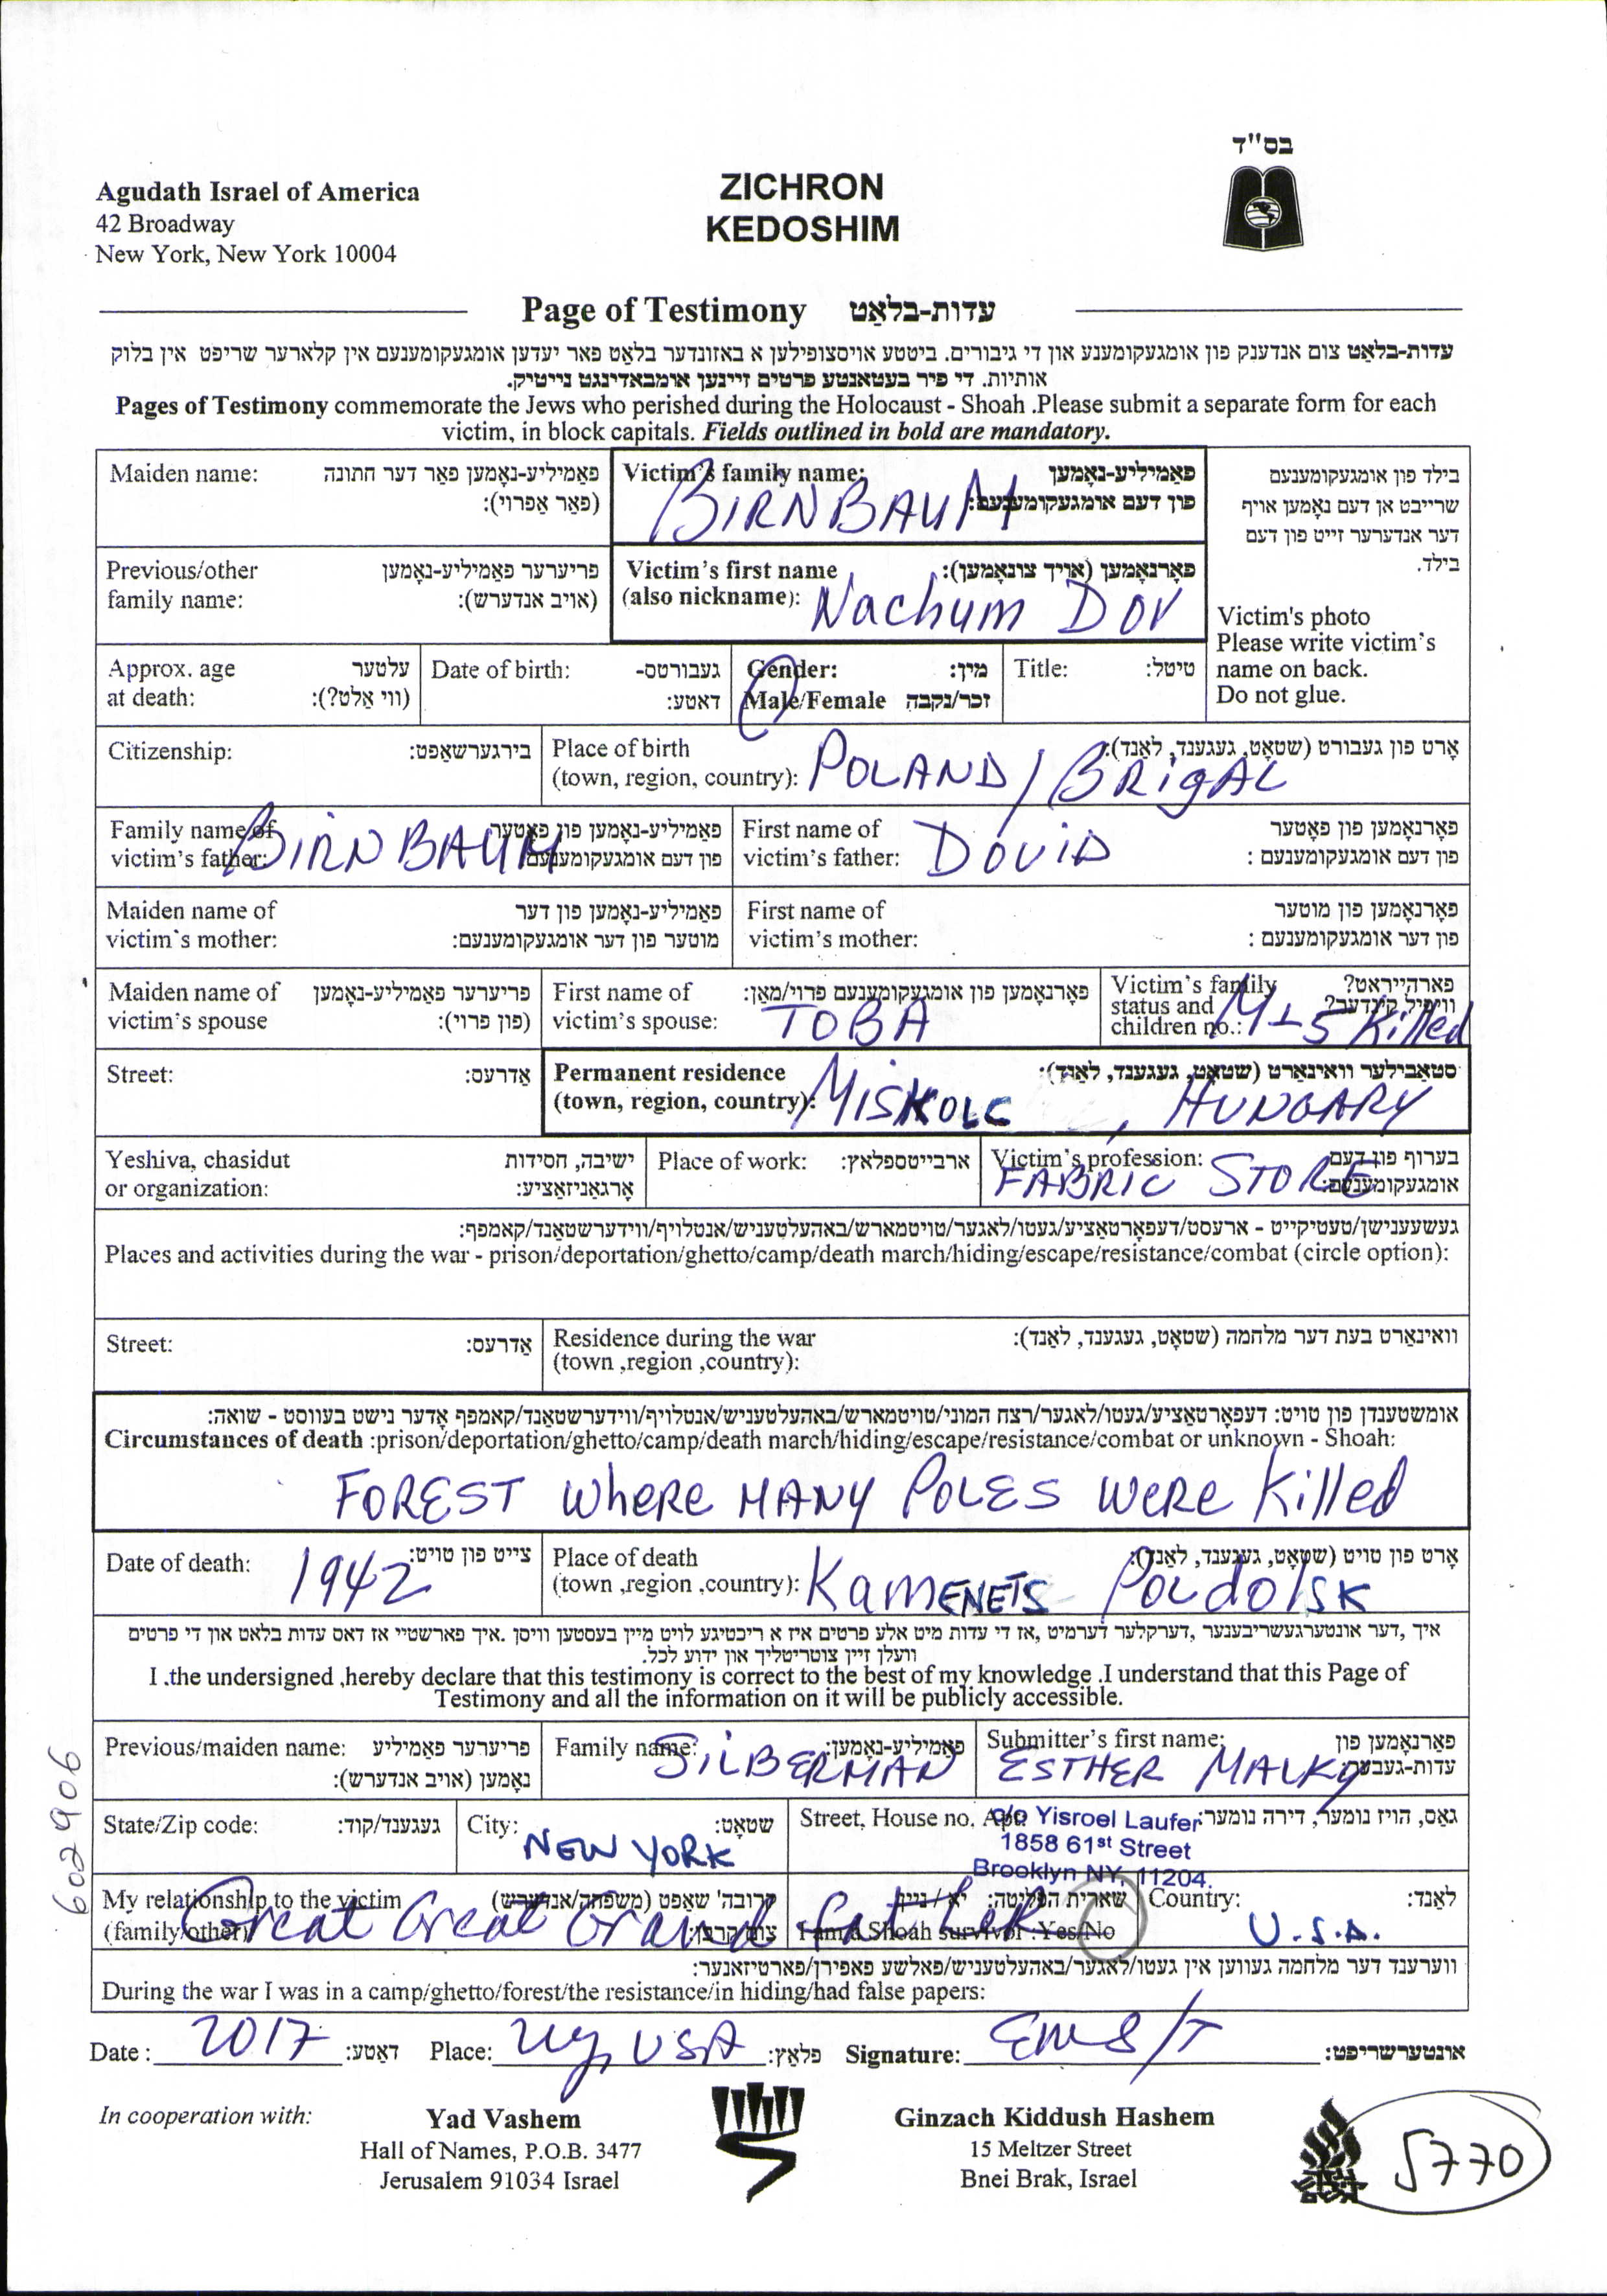 בס"ד
Agudath Israel of America
42 Broadway
New York, New York 10004
ZICHRON
KEDOSHIM
Page of Testimony עדות-בלאַט
עדות-בלאַט צום אנדענק פון אומגעקומענע און די גיבורים. ביטטע אויסצופילען א באזונדער בלאט פאר יעדען אומגעקומענעם אין קלארער שריפט אין בלוק
אותיות. די פיר בעטאנטע פרטים זיינען אומבאדינגט נייטיק.
Pages of Testimony commemorate the Jews who perished during the Holocaust - Shoah .Please submit a separate form for each
victim, in block capitals. Fields outlined in bold are mandatory.
Maiden name: פאַמיליע-נאָמען פאר דער חתונה
(פאר אַפרוי):
Victim's family name: פאַמיליע-נאָמען
פון דעם אומגעקומענעם:
BIRNBAUM
בילד פון אומגעקומענעם
שרייבט אן דעם נאָמען אויף
דער אנדערער זייט פון דעם
בילד.
Victim's photo
Please write victim's
name on back.
Do not glue.
Previous/other פריערער פאַמיליע-נאָמען
family name: (אויב אנדערש):
Victim's first name פאָרנאָמען (אויך צונאָמען):
(also nickname): Nachum DOV
Approx. age עלטער
at death: (ווי אַלט?):
Date of birth: געבורטס-
דאַטע:
Gender: מין:
Male/Female זכר/נקבה
Title: טיטל:
Citizenship: בירגערשאַפט:
Place of birth אָרט פון געבורט (שטאָט, געגענד, לאַנד):
(town, region, country): POLAND / BRIgAL
Family name of פאַמיליע-נאָמען פון פאָטער
victim's father: פון דעם אומגעקומענעם
BIRNBAUM
First name of פאָרנאָמען פון פאָטער
victim's father: פון דעם אומגעקומענעם :
DOVID
Maiden name of פאַמיליע-נאָמען פון דער
victim`s mother: מוטער פון דער אומגעקומענעם:
First name of פאָרנאָמען פון מוטער
victim's mother: פון דער אומגעקומענעם :
Maiden name of פריערער פאַמיליע-נאָמען
victim's spouse (פון פרוי):
First name of פאָרנאָמען פון אומגעקומענעם פרוי/מאַן:
victim's spouse: TOBA
Victim's family פארהייראט?
status and וויפיל קינדער?
children no.: M 5 Killed
Street: אַדרעס:
Permanent residence סטאַבילער וואוינאָרט (שטאָט, געגענד, לאַנד):
(town, region, country): MISKOLC , HUNGARY
Yeshiva, chasidut ישיבה, חסידות
or organization: אָרגאַניזאַציע:
Place of work: ארבייטספלאץ:
Victim's profession: בערוף פון דעם
אומגעקומענעם:
FABRIC STORE
געשעענישן/טעטיקייט - ארעסט/דעפאָרטאַציע/געטו/לאגער/טויטמארש/באהעלטעניש/אנטלויף/ווידערשטאַנד/קאמפף:
Places and activities during the war - prison/deportation/ghetto/camp/death march/hiding/escape/resistance/combat (circle option):
Street: אַדרעס:
Residence during the war וואוינאָרט בעת דער מלחמה (שטאָט, געגענד, לאַנד):
(town ,region ,country):
אומשטענדן פון טויט: דעפאָרטאַציע/געטו/לאגער/רצח המוני/טויטמארש/באהעלטעניש/אנטלויף/ווידערשטאַנד/קאמפף אָדער נישט בעווסט - שואה:
Circumstances of death :prison/deportation/ghetto/camp/death march/hiding/escape/resistance/combat or unknown - Shoah:
FOREST WheRE MANY POLES WeRE Killed
Date of death: צייט פון טויט:
1942
Place of death אָרט פון טויט (שטאָט, געגענד, לאַנד):
(town ,region ,country): KamENETS PoldolSK
איך ,דער אונטערגעשריבענער ,דערקלער דערמיט ,אז די עדות מיט אלע פרטים איז א ריכטיגע לויט מיין בעסטען וויסן .איך פארשטיי אז דאס עדות בלאט און די פרטים
וועלן זיין צוטריטליך און ידוע לכל.
I .the undersigned ,hereby declare that this testimony is correct to the best of my knowledge .I understand that this Page of
Testimony and all the information on it will be publicly accessible.
Previous/maiden name: פריערער פאַמיליע
נאָמען (אויב אנדערש):
Family name: פאַמיליע-נאָמען:
SILBERMAN
Submitter's first name: פאָרנאָמען פון
עדות-געבער:
ESTHER MALKY
State/Zip code: געגענד/קוד:
City: שטאָט:
NEW YORK
Street, House no. Apt. גאַס, הויז נומער, דירה נומער:
c/o Yisroel Laufer
1858 61st Street
Brooklyn NY, 11204.
My relationship to the victim קרובה' שאַפט (משפחה/אנדערש)
(family/other): צום קרבן:
Great Great Grand father
שארית הפליטה: יא / ניין
I am a Shoah survivor :Yes/No
Country: לאַנד:
U.S.A.
ווערענד דער מלחמה געווען אין געטו/לאגער/באהעלטעניש/פאלשע פאפירן/פארטיזאנער:
During the war I was in a camp/ghetto/forest/the resistance/in hiding/had false papers:
Date : 2017 דאַטע: Place: NY, USA פלאַץ: Signature: EMS/T אונטערשריפט:
In cooperation with:
Yad Vashem
Hall of Names, P.O.B. 3477
Jerusalem 91034 Israel
Ginzach Kiddush Hashem
15 Meltzer Street
Bnei Brak, Israel
5770
602906